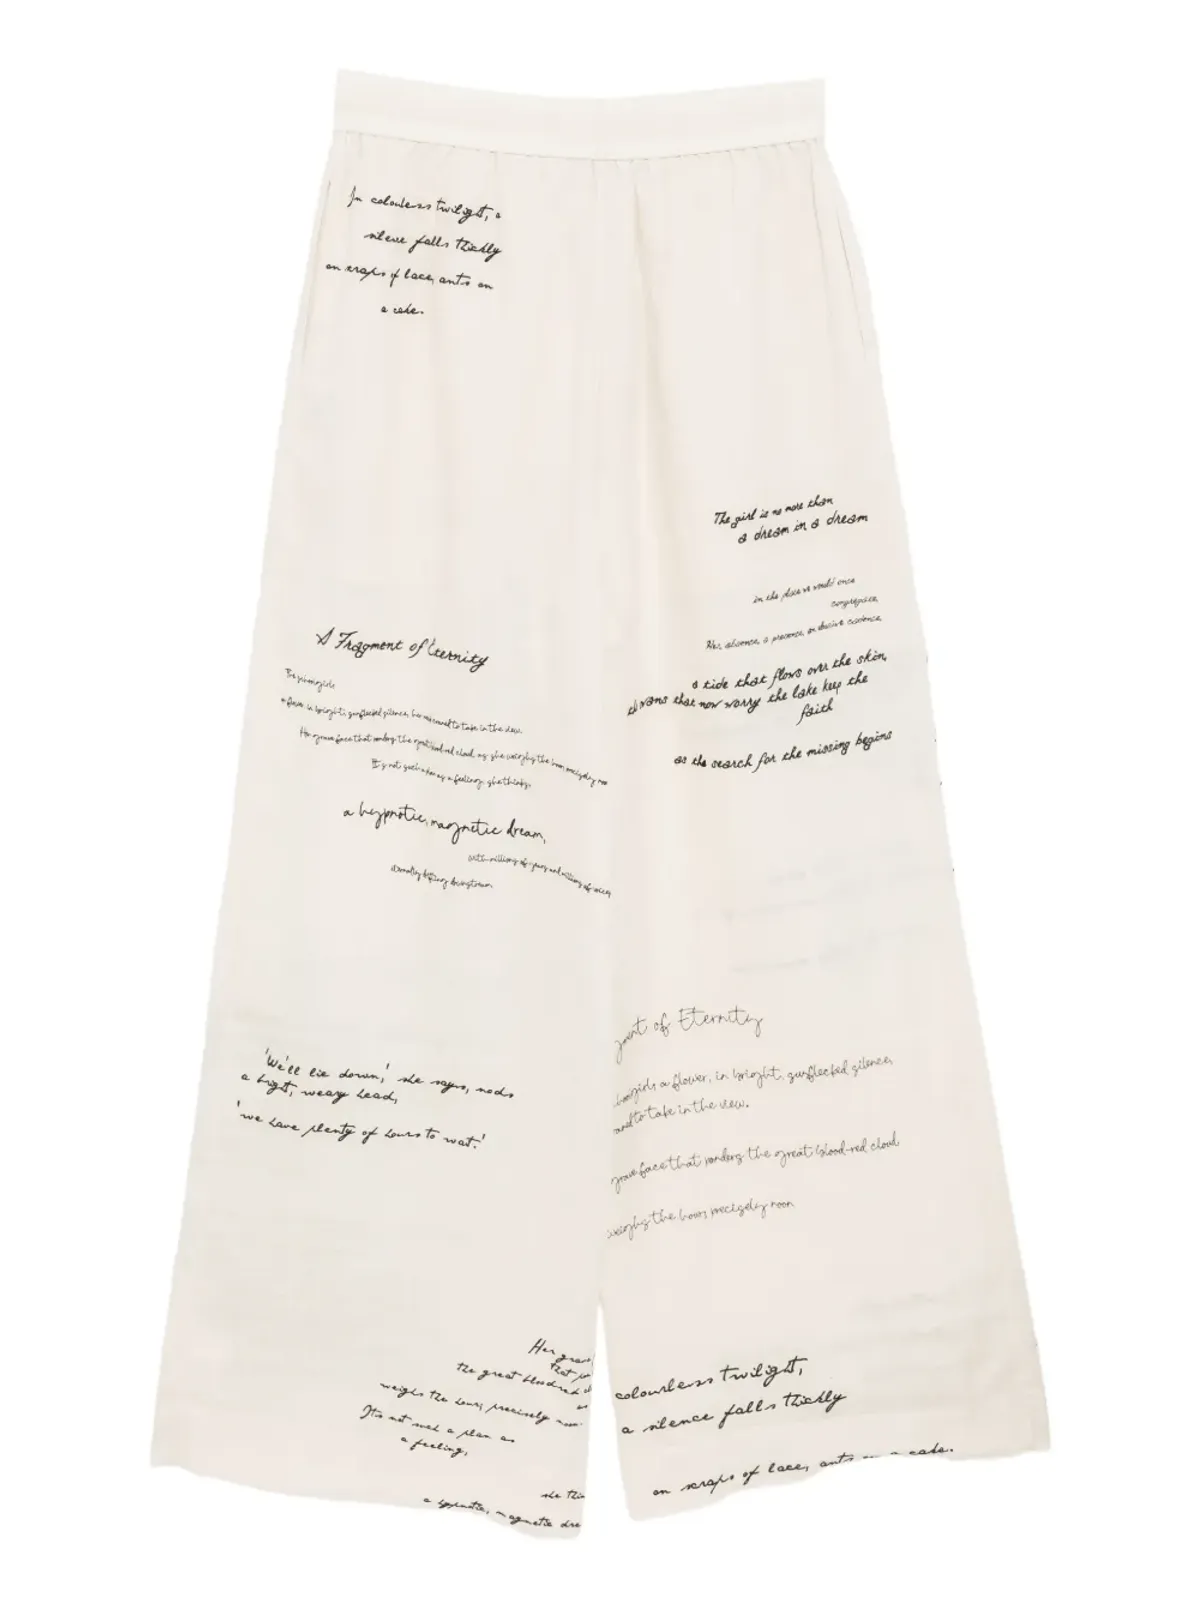 In colourless twilight, a
silence falls thickly
on scraps of lace, ants on
a cake.
The girl is no more than
a dream in a dream
in the place we would once
congregate,
Her absence, a presence, an elusive cadence,
a tide that flows over the skin,
swans that now worry the lake keep the
faith
as the search for the missing begins
A Fragment of Eternity
The schoolgirls
a flower, in bright, sunflecked silence, her and to take in the view.
Her grave face that ponders the great blood-red cloud as she weighs the hour, precisely noon
It's not such a plan as a feeling, she thinks,
a hypnotic, magnetic dream,
with millions of years and millions of miles,
steadily drifting downstream
gment of Eternity
hoolgirls a flower, in bright, sunflecked silence,
and to take in the view.
grave face that ponders the great blood-red cloud
weighs the hour, precisely noon
'We'll lie down,' she says, nods
a bright, weary head,
'we have plenty of hours to wait.'
Her grave
that po
the great blood-red cl
as
weighs the hour, precisely noon
It's not such a plan as
a feeling,
she thin
a hypnotic, magnetic dre
colourless twilight,
a silence falls thickly
on scraps of lace, ants on a cake.